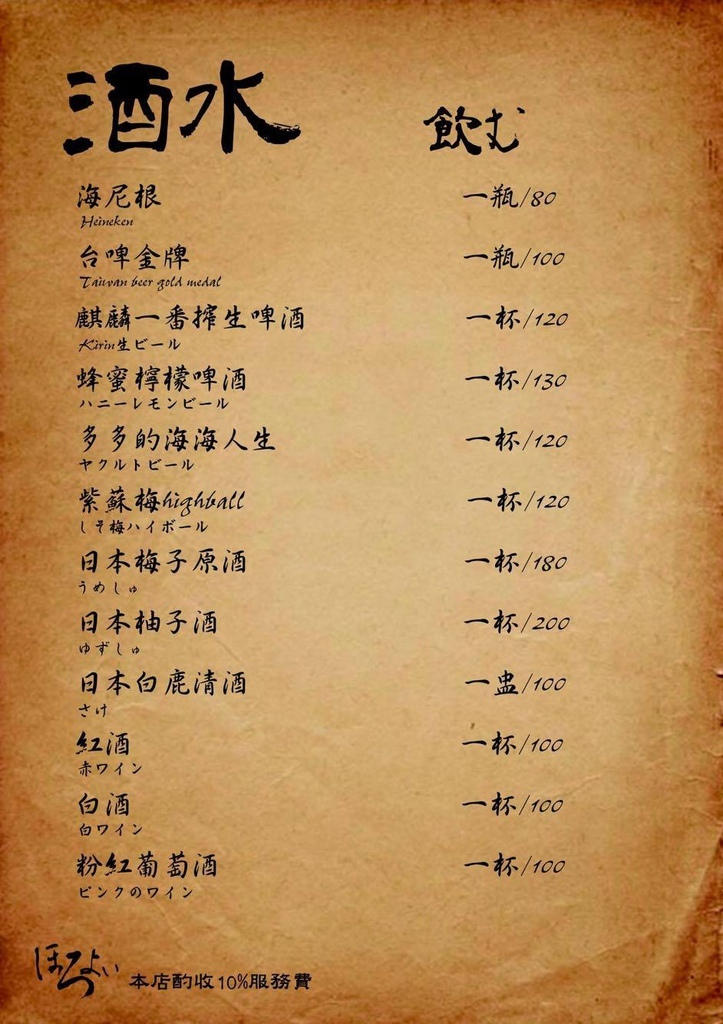 酒水 飲む
海尼根 一瓶/80
Heineken
台啤金牌 一瓶/100
Taiwan beer gold medal
麒麟一番搾生啤酒 一杯/120
Kirin生ビール
蜂蜜檸檬啤酒 一杯/130
ハニーレモンビール
多多的海海人生 一杯/120
ヤクルトビール
紫蘇梅highball 一杯/120
しそ梅ハイボール
日本梅子原酒 一杯/180
うめしゅ
日本柚子酒 一杯/200
ゆずしゅ
日本白鹿清酒 一盅/100
さけ
紅酒 一杯/100
赤ワイン
白酒 一杯/100
白ワイン
粉紅葡萄酒 一杯/100
ピンクのワイン
ほろよい 本店酌收10%服務費